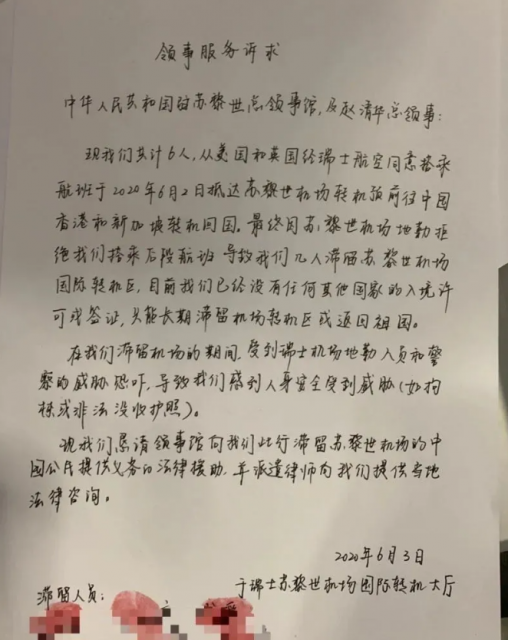 领事服务诉求
中华人民共和国驻苏黎世总领事馆,及赵清华总领事:
现我们共计6人,从美国和英国经瑞士航空同意搭乘
航班于2020年6月2日抵达苏黎世机场转机预前往中国
香港和新加坡转机回国。最终因苏黎世机场地勤拒
绝我们搭乘后段航班 导致我们几人滞留苏黎世机场
国际转机区,目前我们已经没有任何其他国家的入境许
可或签证,只能长期滞留机场转机区或返回祖国。
在我们滞留机场的期间,受到瑞士机场地勤人员和警
察的威胁恐吓,导致我们感到人身安全受到威胁(如拘
禁或非法没收护照)。
现我们恳请领事馆向我们此行滞留苏黎世机场的中
国公民提供义务的法律援助,并派遣律师向我们提供当地
法律咨询。
2020年6月3日
于瑞士苏黎世机场国际转机大厅
滞留人员: